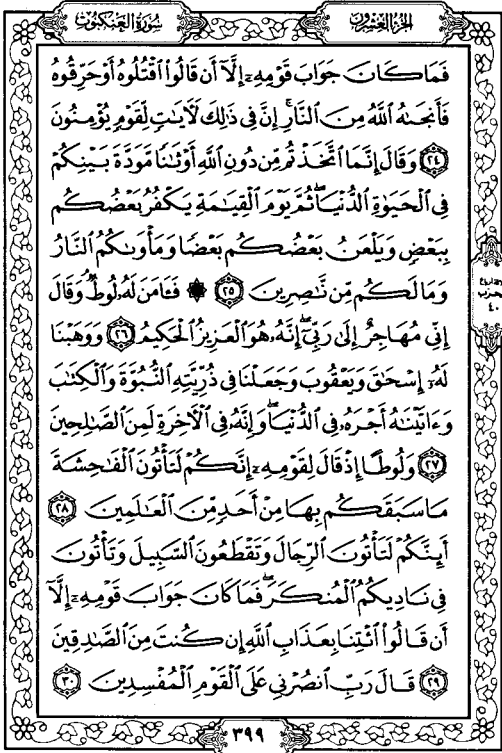 الجزء العشرون
سورة العنكبوت
فَمَا كَانَ جَوَابَ قَوْمِهِۦٓ إِلَّآ أَن قَالُوا۟ ٱقْتُلُوهُ أَوْ حَرِّقُوهُ
فَأَنجَىٰهُ ٱللَّهُ مِنَ ٱلنَّارِ ۚ إِنَّ فِى ذَٰلِكَ لَءَايَٰتٍ لِّقَوْمٍ يُؤْمِنُونَ
٢٤ وَقَالَ إِنَّمَا ٱتَّخَذْتُم مِّن دُونِ ٱللَّهِ أَوْثَٰنًا مَّوَدَّةَ بَيْنِكُمْ
فِى ٱلْحَيَوٰةِ ٱلدُّنْيَا ۖ ثُمَّ يَوْمَ ٱلْقِيَٰمَةِ يَكْفُرُ بَعْضُكُم
بِبَعْضٍ وَيَلْعَنُ بَعْضُكُم بَعْضًا وَمَأْوَىٰكُمُ ٱلنَّارُ
وَمَا لَكُم مِّن نَّٰصِرِينَ ٢٥ ۞ فَـَٔامَنَ لَهُۥ لُوطٌ ۘ وَقَالَ
إِنِّى مُهَاجِرٌ إِلَىٰ رَبِّىٓ ۖ إِنَّهُۥ هُوَ ٱلْعَزِيزُ ٱلْحَكِيمُ ٢٦ وَوَهَبْنَا
لَهُۥٓ إِسْحَٰقَ وَيَعْقُوبَ وَجَعَلْنَا فِى ذُرِّيَّتِهِ ٱلنُّبُوَّةَ وَٱلْكِتَٰبَ
وَءَاتَيْنَٰهُ أَجْرَهُۥ فِى ٱلدُّنْيَا ۖ وَإِنَّهُۥ فِى ٱلْءَاخِرَةِ لَمِنَ ٱلصَّٰلِحِينَ
٢٧ وَلُوطًا إِذْ قَالَ لِقَوْمِهِۦٓ إِنَّكُمْ لَتَأْتُونَ ٱلْفَٰحِشَةَ
مَا سَبَقَكُم بِهَا مِنْ أَحَدٍ مِّنَ ٱلْعَٰلَمِينَ ٢٨
أَئِنَّكُمْ لَتَأْتُونَ ٱلرِّجَالَ وَتَقْطَعُونَ ٱلسَّبِيلَ وَتَأْتُونَ
فِى نَادِيكُمُ ٱلْمُنكَرَ ۖ فَمَا كَانَ جَوَابَ قَوْمِهِۦٓ إِلَّآ
أَن قَالُوا۟ ٱئْتِنَا بِعَذَابِ ٱللَّهِ إِن كُنتَ مِنَ ٱلصَّٰدِقِينَ
٢٩ قَالَ رَبِّ ٱنصُرْنِى عَلَى ٱلْقَوْمِ ٱلْمُفْسِدِينَ ٣٠
حزب
٤٠
٣٩٩